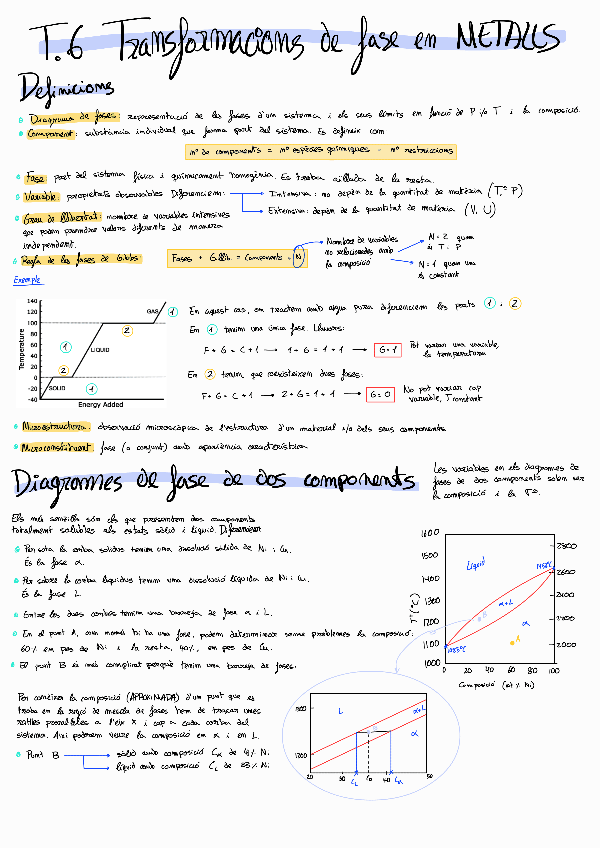 T.6 Transformacions de fase en METALLS
Definicions
Diagrama de fases: representació de les fases d'un sistema i els seus límits en funció de P i/o T i la composició.
Component: substància individual que forma part del sistema. Es defineix com
nº de components = nº espècies químiques - nº restriccions
Fase: part del sistema física i químicament homogènia. Es troba aïllada de la resta.
Variable: propietats observables. Diferenciem:
Intensiva: no depèn de la quantitat de matèria (Tª, P)
Extensiva: depèn de la quantitat de matèria (V, U)
Grau de llibertat: nombre de variables intensives
que poden prendre valors diferents de manera
independent.
Regla de les fases de Gibbs:
Fases + G.llib. = Components + N
Nombre de variables
no relacionades amb
la composició
N = 2 quan
i T i P
N = 1 quan una
és constant
Exemple
140
120
100
80
60
40
20
0
-20
-40
Temperature
Energy Added
SOLID
LIQUID
GAS
1
2
1
2
1
En aquest cas, on tractem amb aigua pura diferenciem les parts 1 i 2
En 1 tenim una única fase. Llavors:
F + G = C + 1 → 1 + G = 1 + 1 → G = 1
Pot variar una variable,
la temperatura
En 2 tenim que coexisteixen dues fases:
F + G = C + 1 → 2 + G = 1 + 1 → G = 0
No pot variar cap
variable, T constant
Microestructura: observació microscòpica de l'estructura d'un material i/o dels seus components
Microconstituent: fase (o conjunt) amb aparència característica.
Diagrames de fase de dos components
Les variables en els diagrames de
fases de dos components solen ser
la composició i la Tª.
Els més senzills són els que presenten dos components
totalment solubles als estats sòlid i líquid. Diferenciem
Per sota la corba solidus tenim una dissolució sòlida de Ni i Cu.
És la fase α.
Per sobre la corba liquidus tenim una dissolució líquida de Ni i Cu.
És la fase L.
Entre les dues corbes tenim una barreja de fase α i L.
En el punt A, on només hi ha una fase, podem determinar sense problemes la composició:
60% en pes de Ni i la resta, 40%, en pes de Cu.
El punt B és més complicat perquè tenim una barreja de fases.
1600
1500
1400
1300
1200
1100
1000
T (°C)
2800
2600
2400
2200
2000
0 20 40 60 80 100
Composició (wt % Ni)
Líquid
α+L
α
B
A
1453°C
1085°C
Per conèixer la composició (APROXIMADA) d'un punt que es
troba en la regió de mescla de fases hem de traçar unes
ratlles paral·leles a l'eix x i cap a cada corba del
sistema. Així podrem veure la composició en α i en L.
Punt B
sòlid amb composició Cα de 41% Ni
líquid amb composició CL de 33% Ni
1300
1200
L
α+L
α
B
20 30 40 50
CL C0 Cα